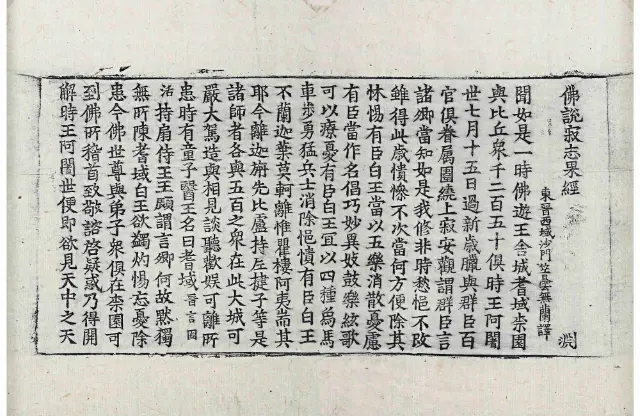 佛說寂志果經
東晉西域沙門竺曇無蘭譯 淵
聞如是一時佛遊王舍城耆域柰園
與比丘衆千二百五十俱時王阿闍
世七月十五日過新歲臘與群臣百
官俱眷屬圍繞上寂安觀謂群臣言
諸卿當知如是我脩非時愁悒不改
雖得此歲憒慘不次當何方便除其
怵惕有臣白王當以五樂消散憂慮
有臣當作名倡巧妙異妓鼓樂絃歌
可以療憂有臣白王宜以四種爲馬
車步勇猛兵士消除悒憒有臣白王
不蘭迦葉莫軻離惟瞿樓阿夷耑其
耶今離迦旃先比盧持左揵子等是
諸師者各與五百之衆在此大城可
嚴大駕造與相見談聽歡娛可離所
患時有童子醫王名曰耆域晉言固
活持扇侍王王顧謂言卿何故黙獨
無所陳耆域白王欲蠲灼惕忘憂除
患今佛世尊與弟子衆俱在柰園可
到佛所稽首致敬諮啓疑惑乃得開
解時王阿闍世便即欲見天中之天